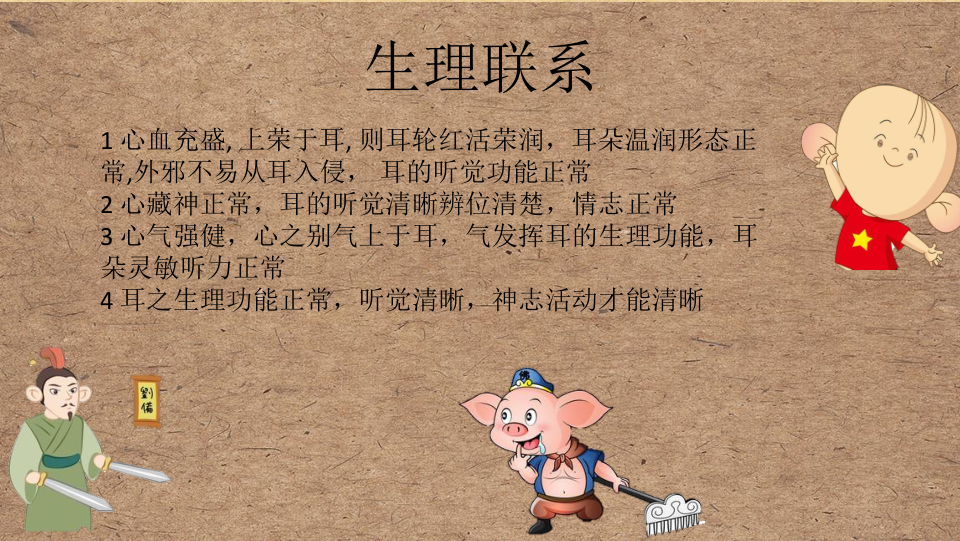 生理联系
1 心血充盛, 上荣于耳, 则耳轮红活荣润，耳朵温润形态正
常,外邪不易从耳入侵， 耳的听觉功能正常
2 心藏神正常，耳的听觉清晰辨位清楚，情志正常
3 心气强健，心之别气上于耳，气发挥耳的生理功能，耳
朵灵敏听力正常
4 耳之生理功能正常，听觉清晰，神志活动才能清晰
劉
備
佛